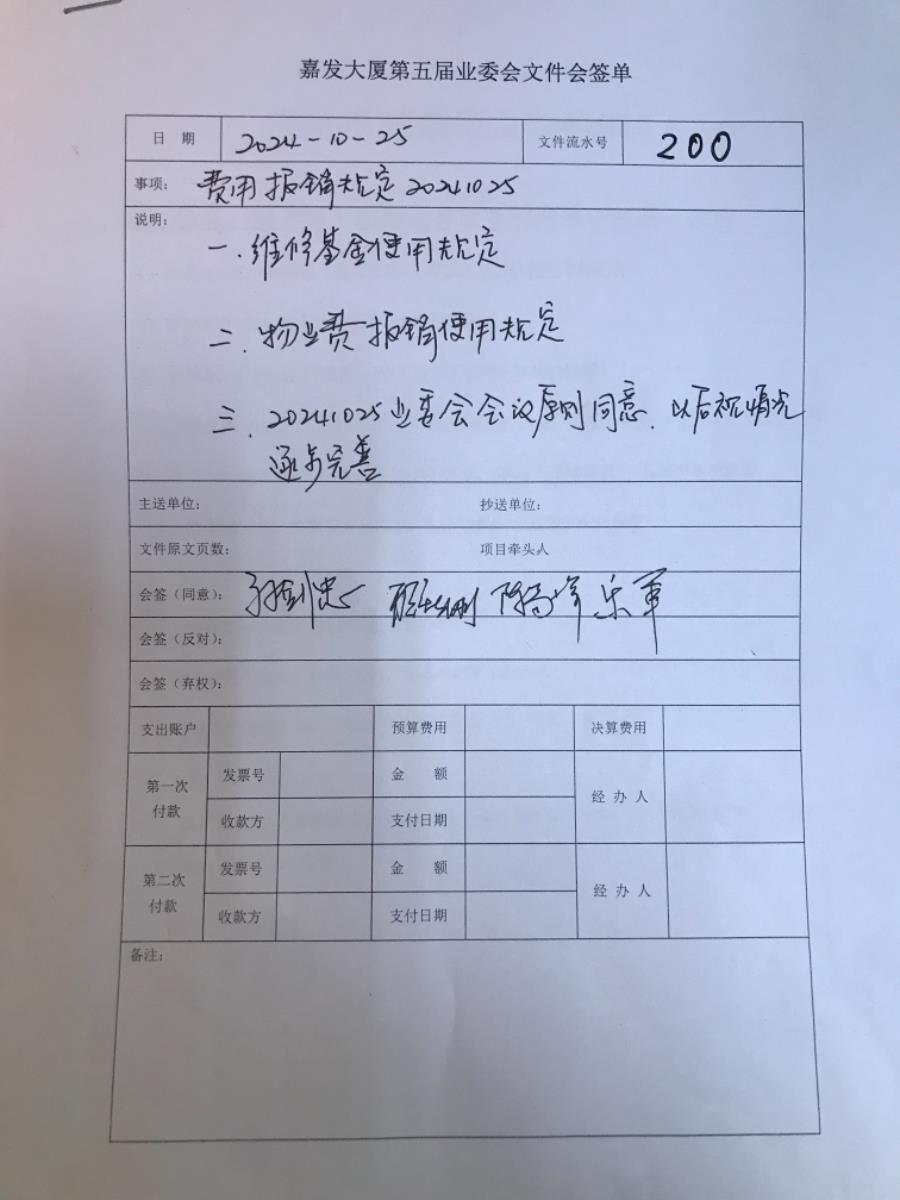 嘉发大厦第五届业委会文件会签单
日 期 2024-10-25 文件流水号 200
事项: 费用报销规定20241025
说明:
一.维修基金使用规定
二.物业费报销使用规定
三.20241025业委会会议原则同意.以后视情况
逐步完善
主送单位: 抄送单位:
文件原文页数: 项目牵头人
会签(同意): 乐军
会签(反对):
会签(弃权):
支出账户 预算费用 决算费用
第一次付款 发票号 金 额 经办人
收款方 支付日期
第二次付款 发票号 金 额 经办人
收款方 支付日期
备注: